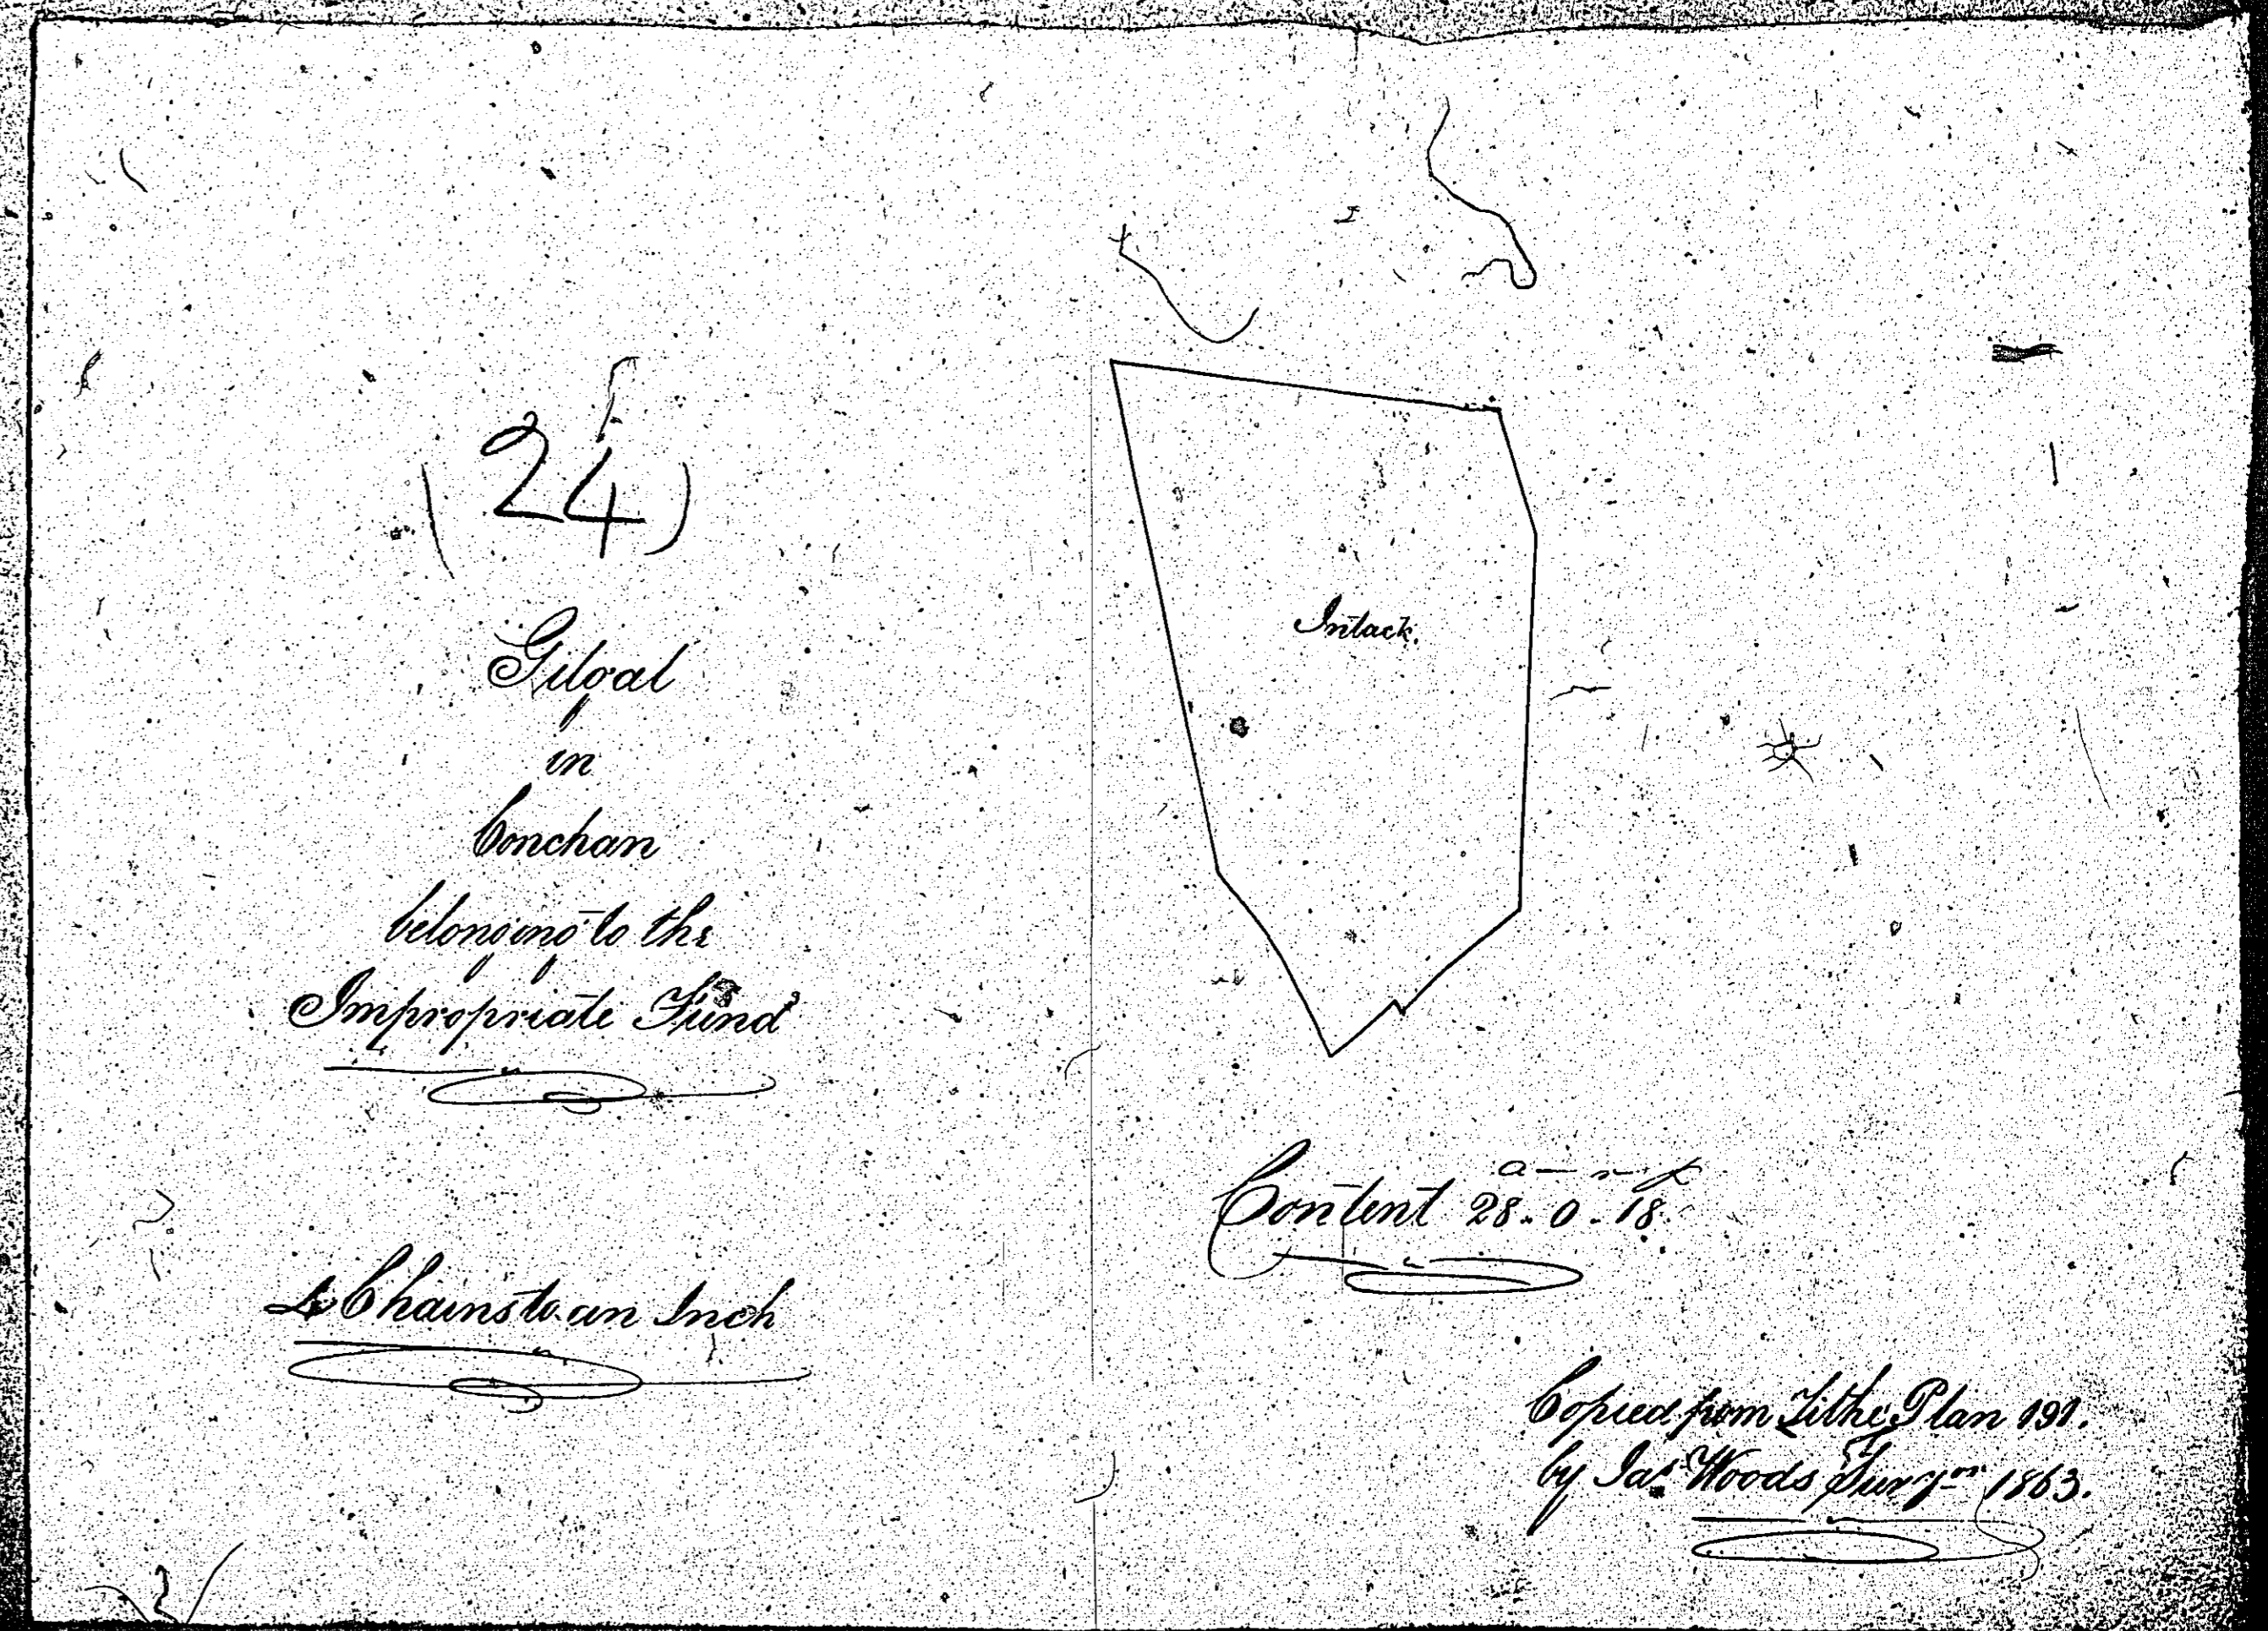 (24)
Gilgal
in
Conchan
belonging to the
Impropriate Fund
Chains to an Inch
Intack.
a — r — p
Content 28. 0. 18.
Copied from Tithe Plan 191.
by Jas. Woods Survyor 1863.